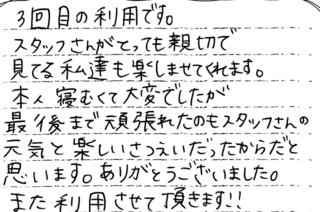 3回目の利用です。
スタッフさんがとっても親切で
見てる私達も楽しませてくれます。
本人寝むくて大変でしたが
最後まで頑張れたのもスタッフさんの
元気と楽しいさつえいだったからだと
思います。ありがとうございました。
また利用させて頂きます!!